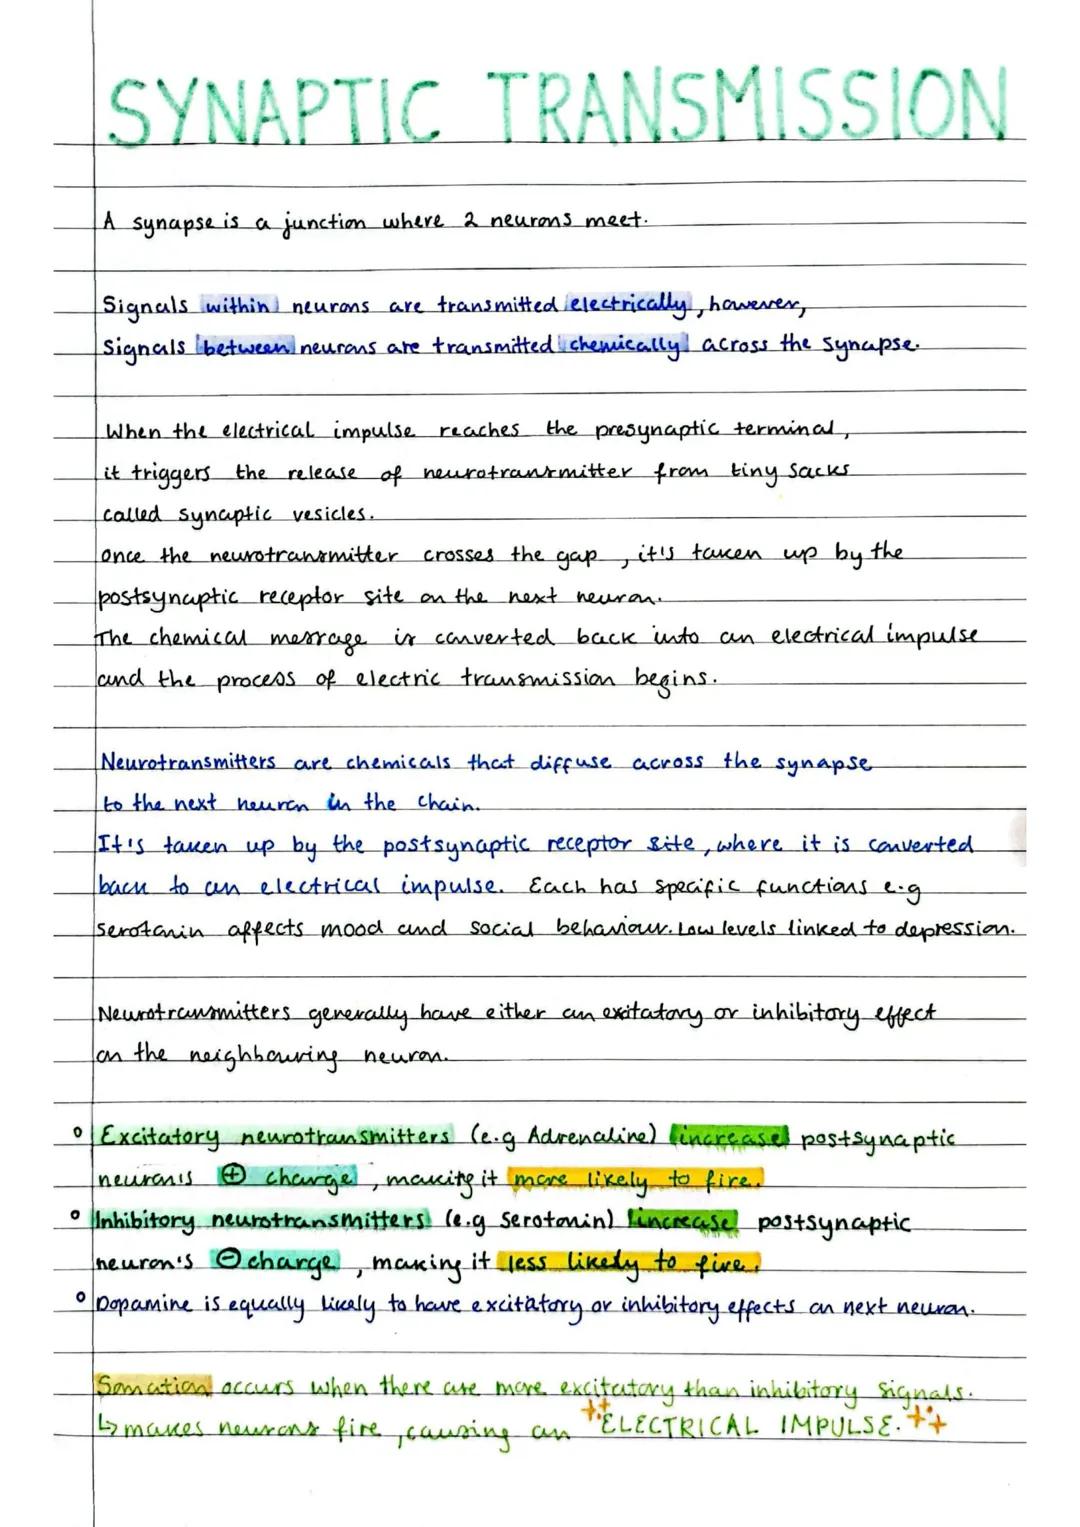 SYNAPTIC TRANSMISSION
A synapse is a junction where 2 neurons meet.
Signals within neurons are transmitted electrically, however,
Signals between neurons are transmitted chemically across the synapse.
When the electrical impulse reaches the presynaptic terminal,
it triggers the release of neurotransmitter from tiny sacks
called synaptic vesicles.
Once the neurotransmitter crosses the gap, it's taken up by the
postsynaptic receptor site on the next neuron.
The chemical message is converted back into an electrical impulse
and the process of electric transmission begins.
Neurotransmitters are chemicals that diffuse across the synapse
to the next neuron in the chain.
It's taken up by the postsynaptic receptor site, where it is converted
back to an electrical impulse. Each has specific functions e.g
serotonin affects mood and social behaviour. Low levels linked to depression.
Neurotransmitters generally have either an exitatory or inhibitory effect
on the neighbouring neuron.
° Excitatory neurotransmitters (e.g Adrenaline) increase postsynaptic
neuron's ⊕ charge, making it more likely to fire.
° Inhibitory neurotransmitters (e.g Serotonin) increase postsynaptic
neuron's ⊖ charge, making it less likely to fire.
° Dopamine is equally likely to have excitatory or inhibitory effects on next neuron.
Somation occurs when there are more excitatory than inhibitory signals.
↳ makes neurons fire, causing an ELECTRICAL IMPULSE.